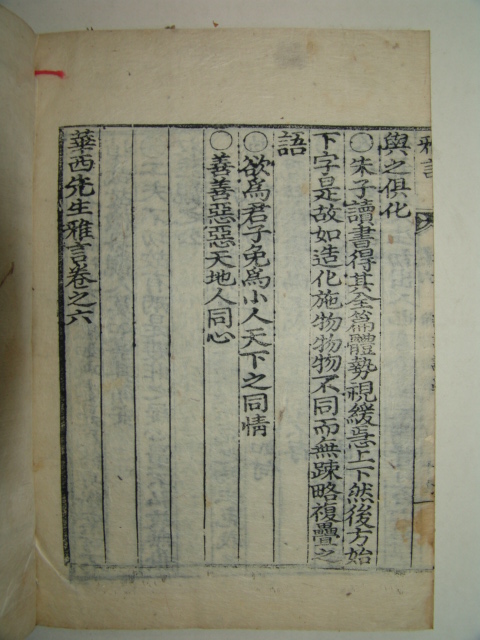 雅言
與之俱化
○朱子讀書得其全篇體勢視緩急上下然後方始
下字是故如造化施物物物不同而無疎略複疊之
語
○欲為君子免為小人天下之同情
○善善惡惡天地人同心
華西先生雅言卷之六